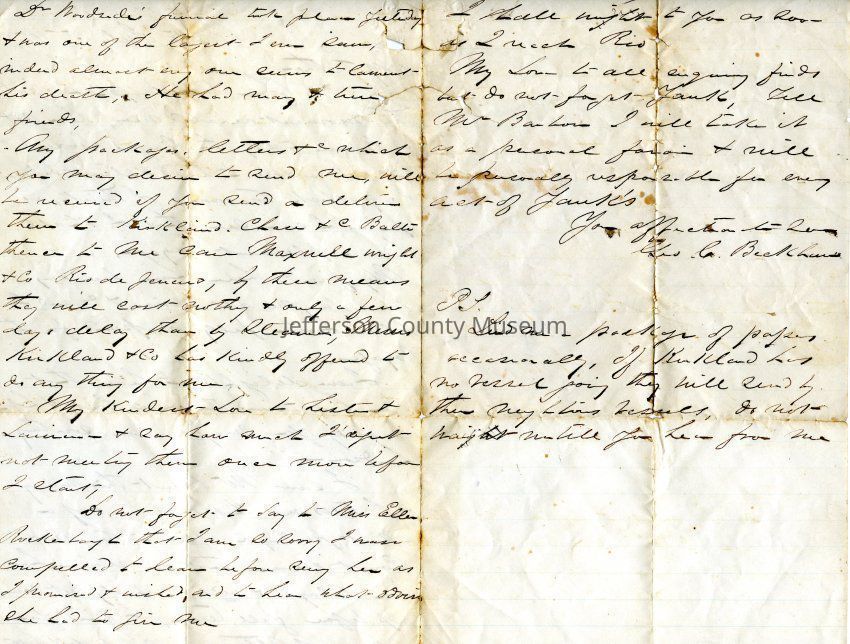 Dr Woodside's funeral took place yesterday
& was one of the largest I ever saw,
indeed almost every one seems to lament
his death, He had many & true
friends,
Any packages, letters &c which
you may desire to send me, will
be received if you send a deliver
them to Kirkland. Chase & C Balto
thence to me Care Maxwell Wright
& Co Rio de Janeiro, by these means
they will cost nothing & only a few
days delay than by Steamer,
Kirkland & Co has kindly offered to
do any thing for me
My kindest Love to Sister &
& say how much I regret
not meeting them once more before
I start,
Do not forget to say to Miss Ellen
that I am so sorry I was
compelled to leave before seeing her as
I promised & wished, and to hear what advice
she had to give me
I shall wright to you as soon
as I reach Rio
My Love to all enquiring finds
but do not forget Yank, Tell
Mr I will take it
as a personal favor & will
be personally responsible for every
act of Yanks
Your affectionate Son
Geo. C. Beckham
P.S.
Send me a package of papers
occasionally, If Kirkland has
no vessel going they will send by
their neighbors vessels, do not
waight untill you hear from me
Jefferson County Museum